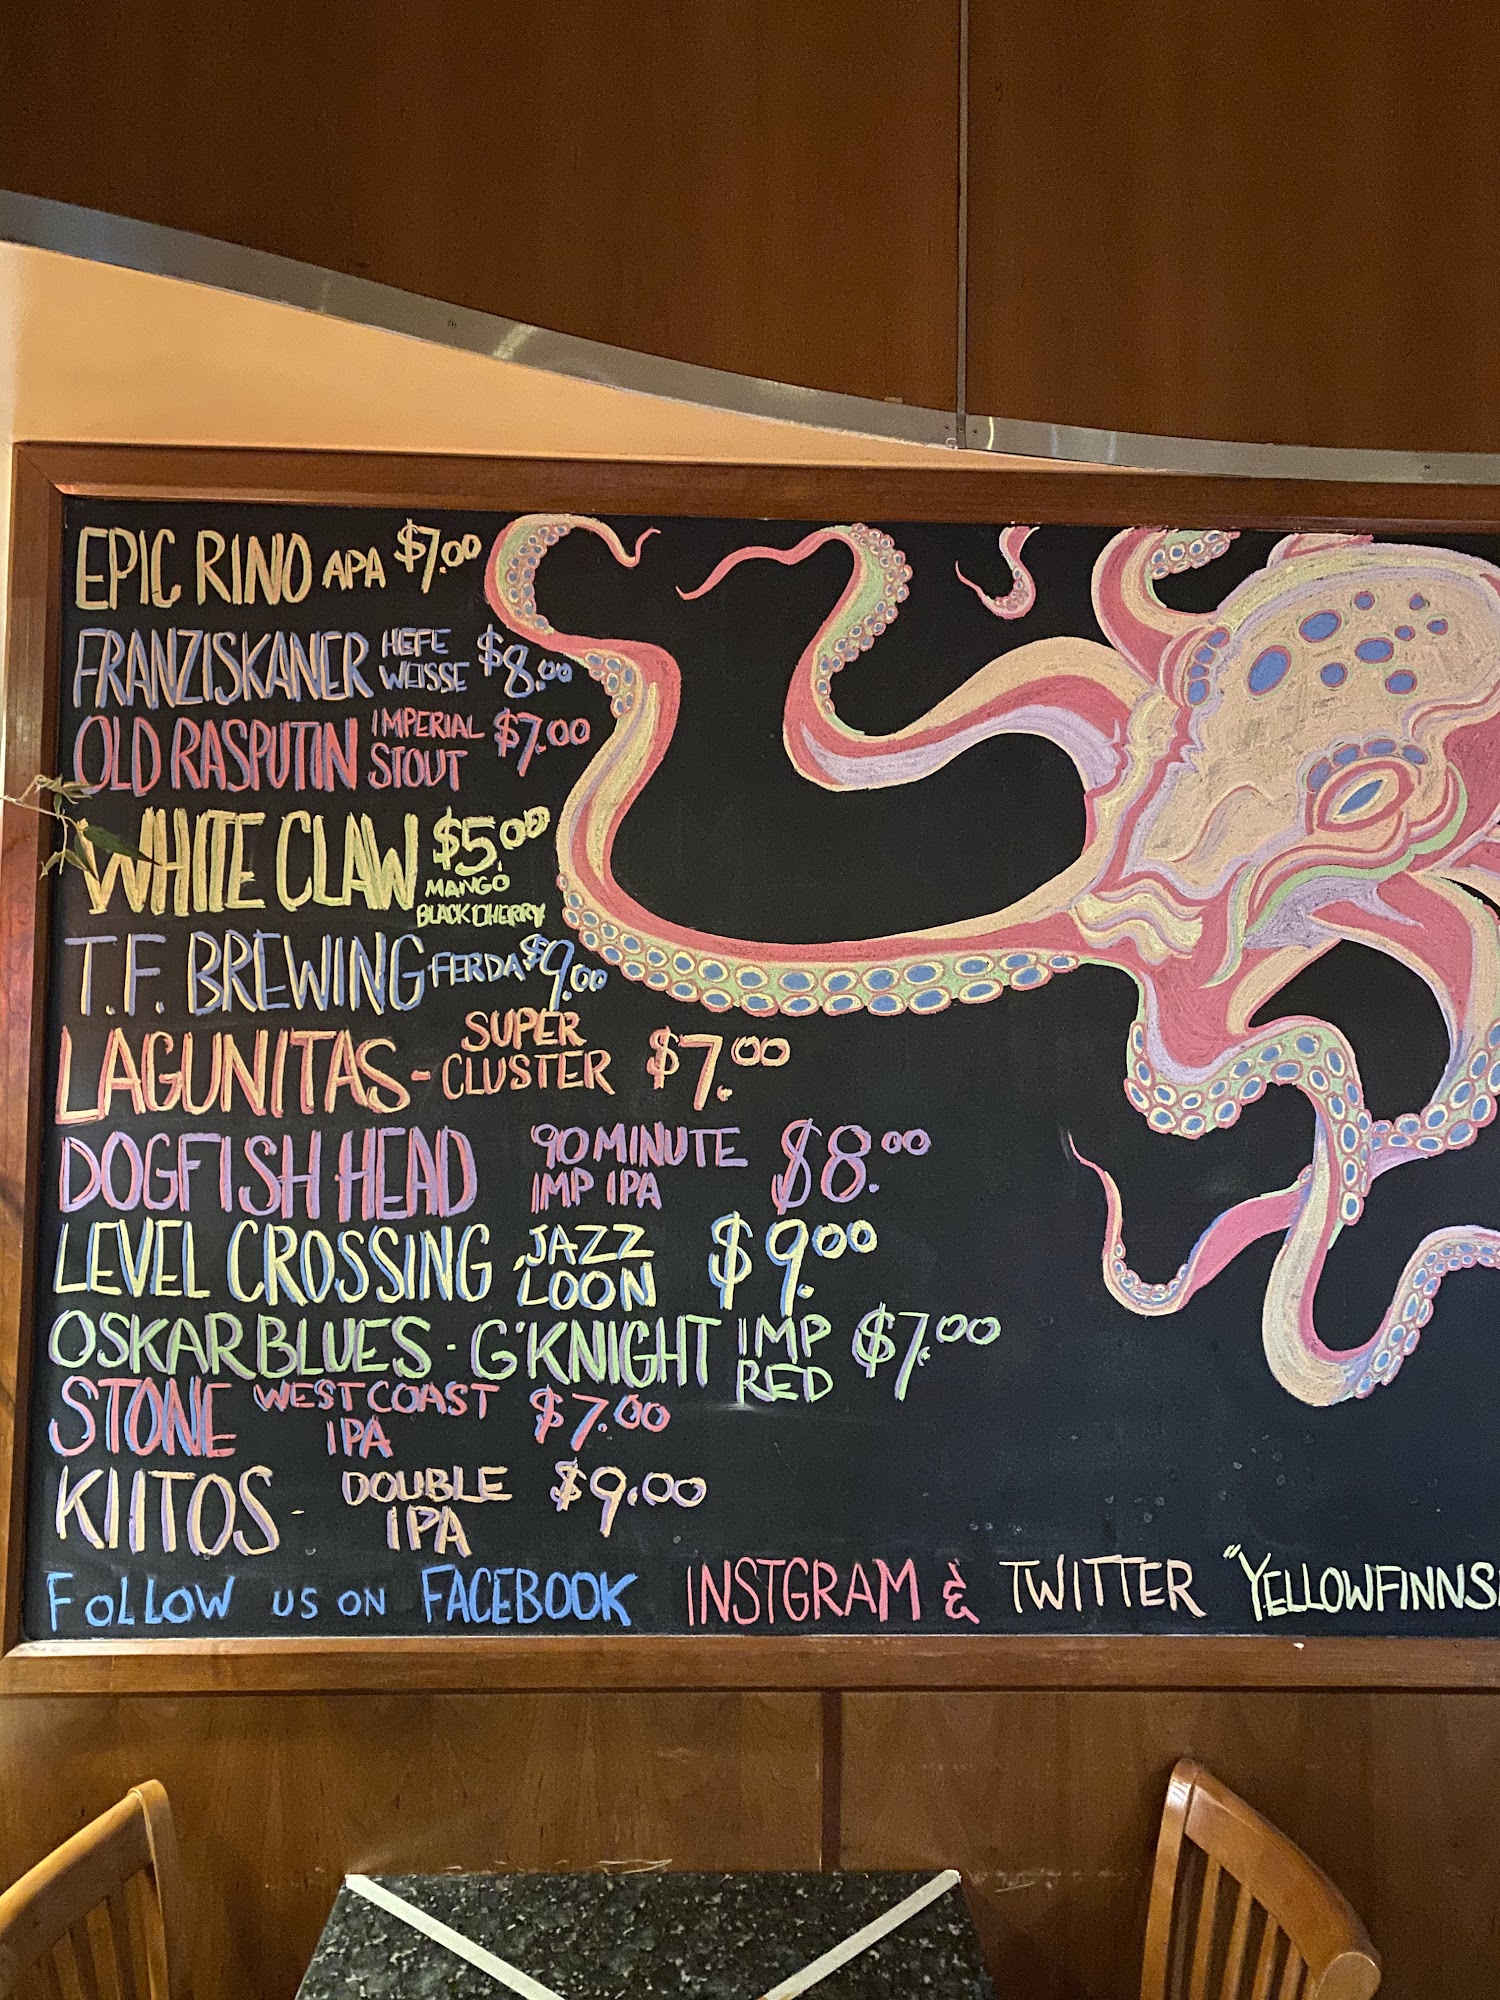 EPIC RINO APA $7.00
FRANZISKANER HEFE WEISSE $8.00
OLD RASPUTIN IMPERIAL STOUT $7.00
WHITE CLAW $5.00
MANGO
BLACK CHERRY
T.F. BREWING FERDA $9.00
LAGUNITAS - SUPER CLUSTER $7.00
DOGFISH HEAD 90 MINUTE IMP IPA $8.00
LEVEL CROSSING JAZZ LOON $9.00
OSKAR BLUES - G'KNIGHT IMP RED $7.00
STONE WEST COAST IPA $7.00
KIITOS - DOUBLE IPA $9.00
FOLLOW US ON FACEBOOK INSTGRAM & TWITTER "YELLOWFINNS